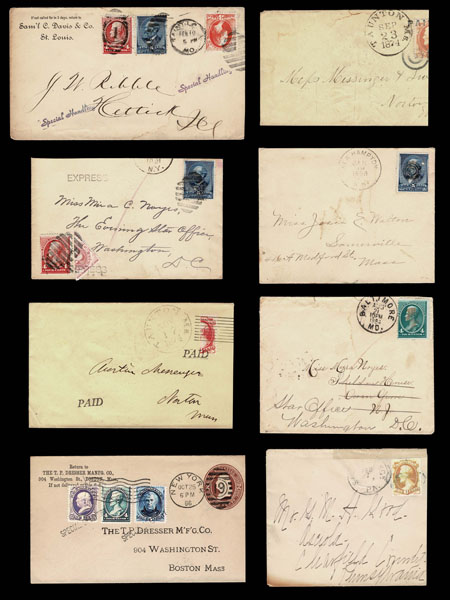 If not called for in 5 days, return to
Sam'l C. Davis & Co.
St. Louis.
SAINT LOUIS
FEB 10
5 PM
MO.
J. W. Ribble
"Special Handling"
"Special Handling"
Hettick
Ill
TAUNTON
SEP
23
1874
Mess Messinger &
Norton
N.Y.
EXPRESS
Miss Mina C. Noyes,
The Evening Star Office
Washington
D.C.
Miss Josie E. Walton
Somerville
Medford St
Mass
PAID
PAID
Austin Messenger
Norton
Mass
BALTIMORE
MD.
Miss Mina Noyes
Star Office
N.J.
Washington D.C.
Return to
THE T. P. DRESSER MANFG. CO.,
904 Washington St., Boston, Mass.
If not delivered
NEW YORK
OCT 25
6 PM
86
9
THE T. P. DRESSER M'F'G. CO.
904 WASHINGTON ST.
BOSTON MASS
Mr. G. M. H. Good
Osceola
Clearfield County
Pennsylvania